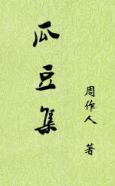 瓜豆集
周作人 著